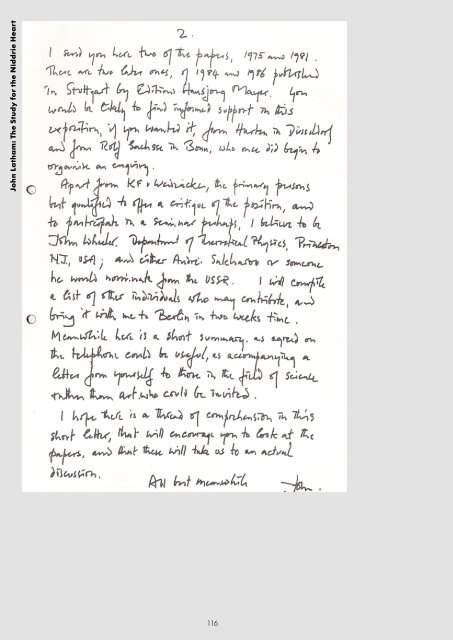 John Latham: The Study for the Niddrie Heart
2.
I send you here two of the papers, 1975 and 1981.
There are two later ones, of 1984 and 1986 published
in Stuttgart by Edition Hansjorg Mayer. You
would be likely to find informed support in this
exposition, if you wanted it, from Harten in Düsseldorf
and from Rolf Sachsse in Bonn, who once did begin to
organise an enquiry.
Apart from KF v Weizäcker, the primary persons
best qualified to offer a critique of the position, and
to participate in a seminar perhaps, I believe to be
John Wheeler, Department of Theoretical Physics, Princeton
NJ, USA; and either Andrei Sakharov or someone
he would nominate from the USSR. I will compile
a list of other individuals who may contribute, and
bring it with me to Berlin in two weeks time.
Meanwhile here is a short summary. as agreed on
the telephone could be useful, as accompanying a
letter from yourself to those in the field of science
rather than art who could be invited.
I hope there is a thread of comprehension in this
short letter, that will encourage you to look at the
papers, and that these will take us to an actual
discussion.
All best meanwhile John.
116